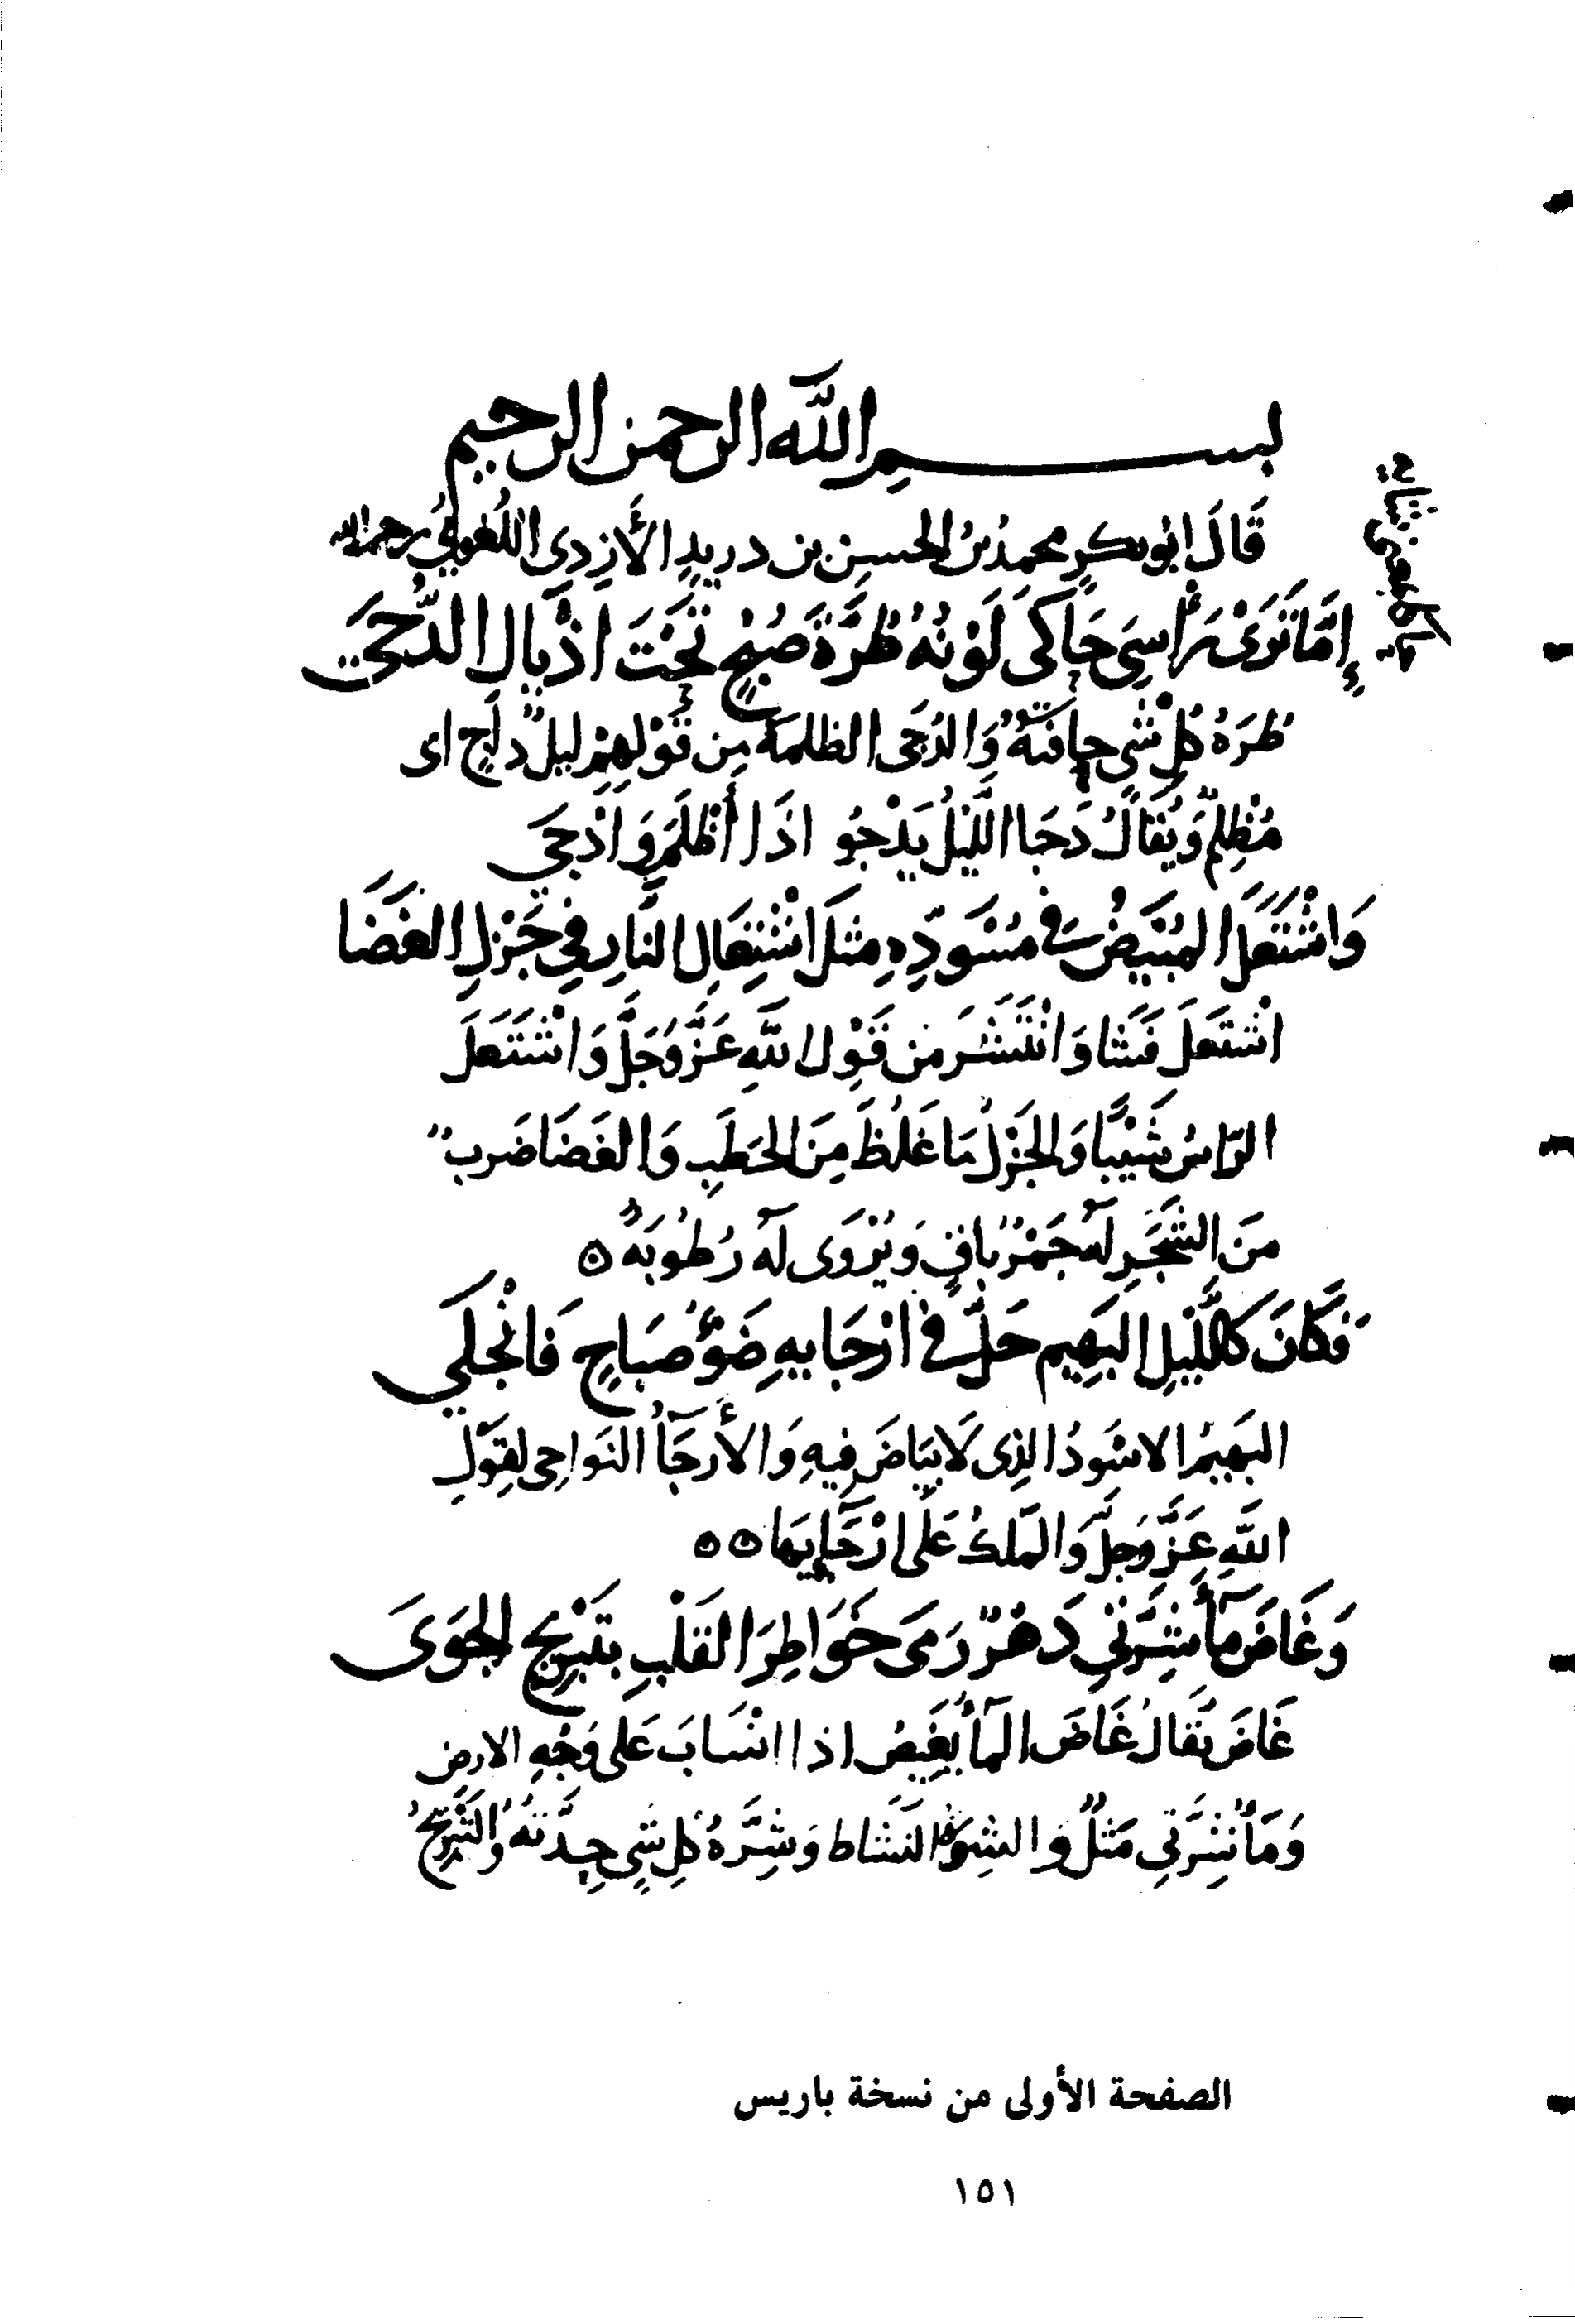 بسم الله الرحمن الرحيم
قَالَ ابُو بكرٍ محمدُ بنُ الحسنِ بن دريدٍ الأزدي اللُغويُّ رحمه الله
إِمَّا تَرَىْ رَأْسِيَ حَاكَى لَوْنُهُ طُرَّةَ صُبْحٍ تَحْتَ اذْيَالِ الدُّجَى
طُرَةُ كُلِ شْيٍ حافَتهُ وَالدُجَى الظلمَةُ مِن قَوْلِهِمْ ليلٌ دَاجٍ اى
مُظْلِمٌ وَيُقَالُ دَجَا اللَّيْلُ يَدْجُو اذَا أَظْلَمَ وَادْجَى
وَاشْتَعَلَ المُبْيَضُّ فى مُسْوَدِّهِ مثلَ اشْتِعَالِ النَّارِ فِي جَزْلِ الغَضَا
اشْتَعَلَ فَشَا وَانْتَشَرَ من قَوْلِ اللهِ عَزَّ وَجَلَّ وَاشْتَعَلَ
الرَّاسُ شَيْبًا وَالجَزْلُ مَا غَلُظَ مِنَ الحَطَبِ وَالغَضَا ضَربٌ
مِنَ الشَّجَرِ لَهُ جَمْرٌ بَاقٍ وَيُرْوَى لَهُ رُطُوبَةٌ ه
فَكَانَ كَاللَّيْلِ البَهِيمِ حَلَّ فى ارْجَايِهِ ضَوْءُ صَبَاحٍ فَانْجَلَى
البَهِيمُ الاسْوَدُ الذِى لَا بَيَاضَ فِيهِ وَالأَرجَآءُ النَوَاحِى لِقَوْلِ
اللهِ عَزَّ وَجلَّ وَالمَلَكُ عَلَى ارْجَايِهَا ه ه
وَغَاضَ مَآءَ شِرَّتِي دَهْرٌ رَمَى خَوَاطِرَ القَلْبِ بتَبْرِيحِ الجَوَى
غَاضَ يُقَالُ غَاضَ المَآءُ يَغِيضُ اذا انْسَابَ عَلى وَجْهِ الارض
وَمَآءُ شِرَّتِي مَثَلٌ وَالشِرَّةُ النَشَاط وَشِرَّةُ كُلِ شَيٍ حِدَّتهُ وَالتَبْرِيحُ
الصفحة الأولى من نسخة باريس
١٥١